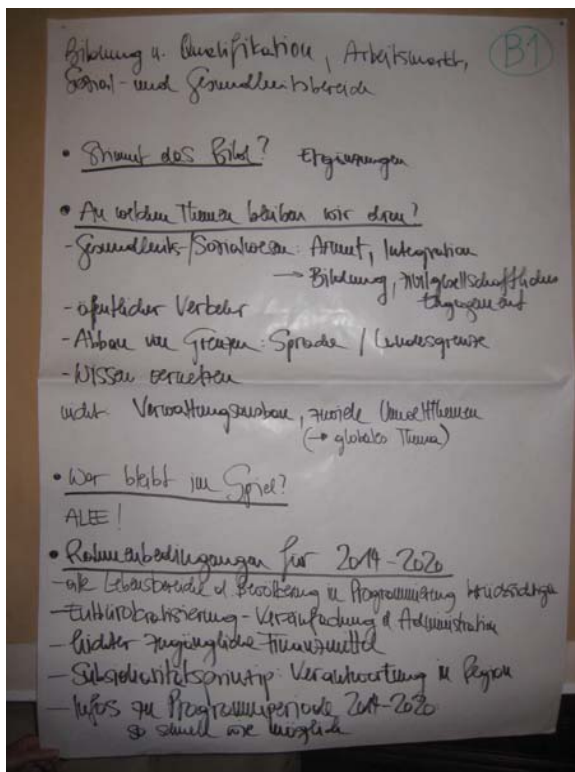 Bildung u. Qualifikation, Arbeitsmarkt,
B1
Sozial- und Gesundheitsbereich
• Stimmt das Bild? Ergänzungen
• An welchen Themen bleiben wir dran?
- Gesundheits-/Sozialwesen: Armut, Integration
→ Bildung, zivilgesellschaftliches
Engagement
- öffentlicher Verkehr
- Abbau von Grenzen: Sprache / Landesgrenze
- Wissen vernetzen
nicht: Verwaltungsausbau, zuviele Umweltthemen
(→ globales Thema)
• Wer bleibt im Spiel?
ALLE!
• Rahmenbedingungen für 2014-2020
- alle Lebensbereiche d. Bevölkerung in Programmierung berücksichtigen
- Entbürokratisierung - Vereinfachung d. Administration
- leichter zugängliche Finanzmittel
- Subsidiaritätsprinzip: Verantwortung in Region
- Infos zu Programmperiode 2014-2020
so schnell wie möglich